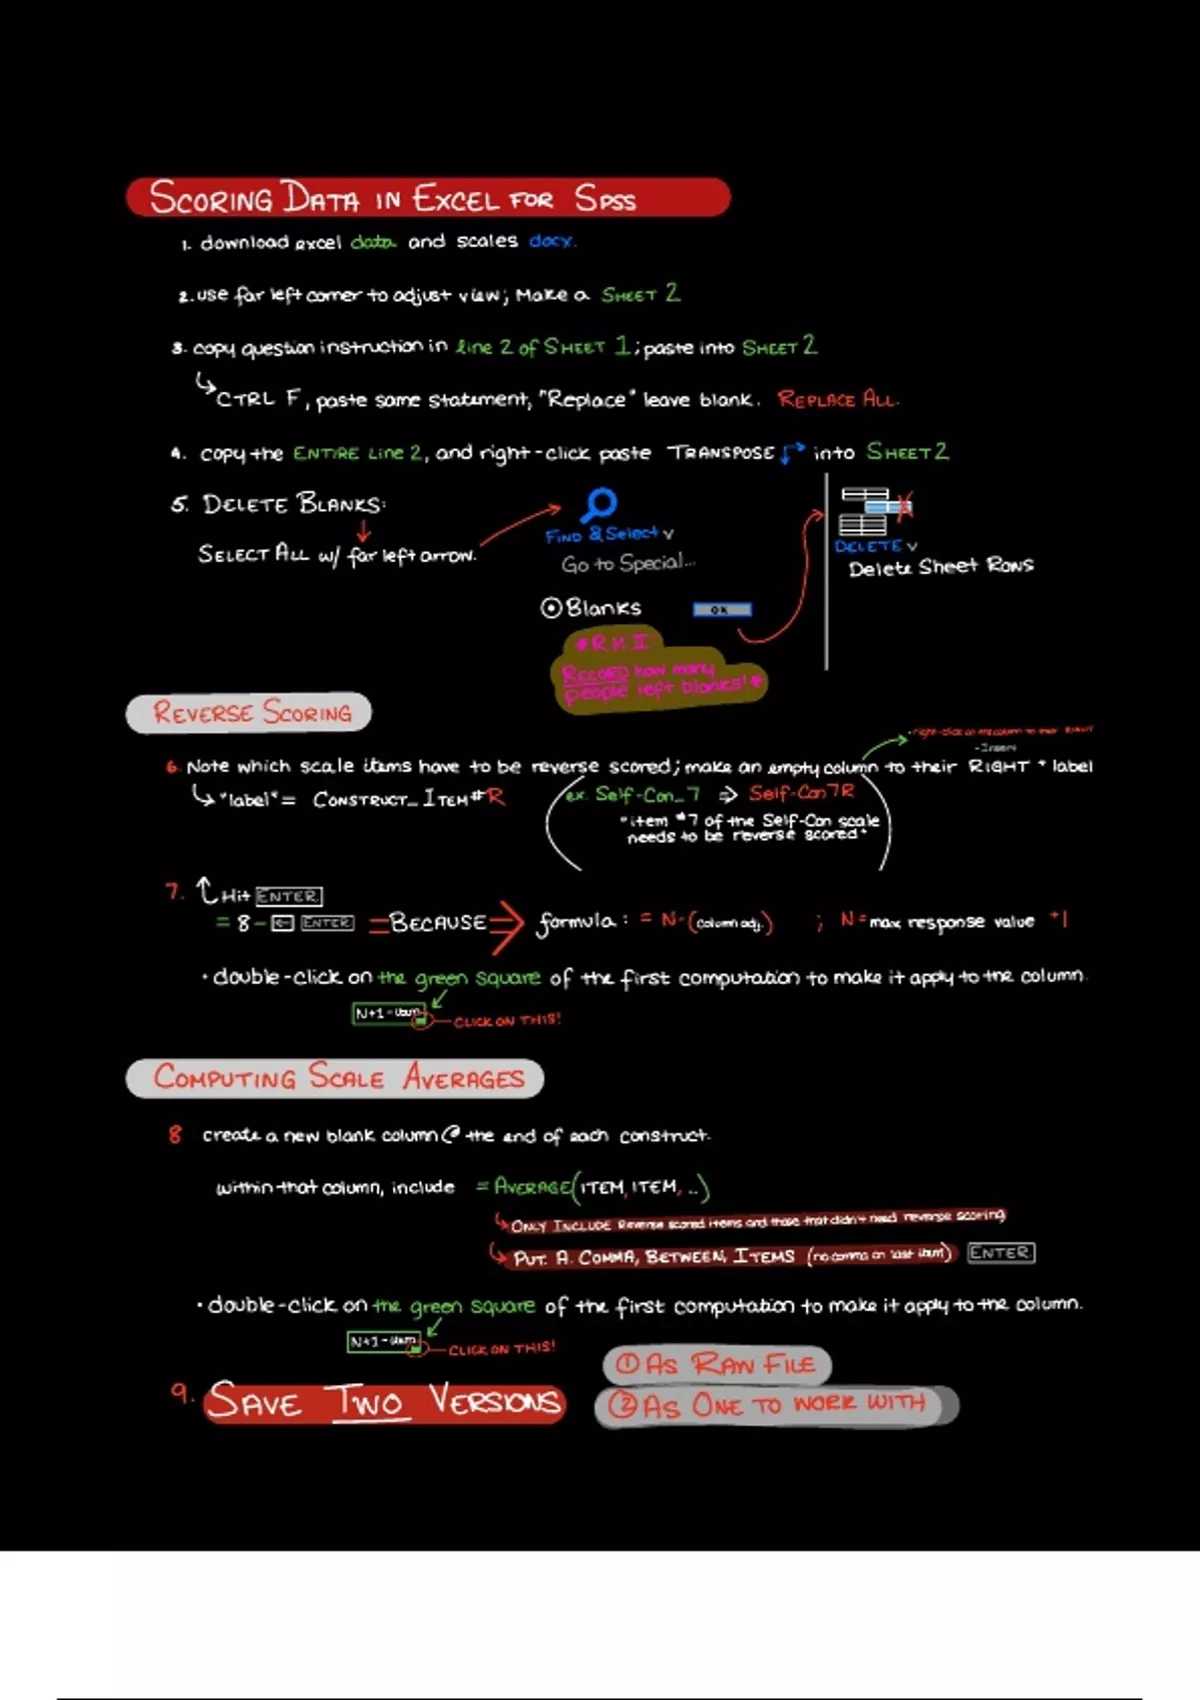 SCORING DATA IN EXCEL FOR SPSS
1. download excel data and scales docx.
2. use far left corner to adjust view; Make a SHEET 2
3. copy question instruction in line 2 of SHEET 1; paste into SHEET 2
CTRL F, paste same statement, "Replace" leave blank. REPLACE ALL.
4. copy the ENTIRE Line 2, and right-click paste TRANSPOSE into SHEET 2
5. DELETE BLANKS:
SELECT ALL w/ far left arrow.
FIND & Select v
Go to Special...
Blanks OK
DELETE v
Delete Sheet Rows
*RM II:
RECORD how many
people left blanks!*
REVERSE SCORING
right-click on the column to their RIGHT
-Insert
6. Note which scale items have to be reverse scored; make an empty column to their RIGHT * label
"label" = CONSTRUCT_ITEM#R
(ex. Self-Con_7 => Self-Con7R
*item #7 of the Self-Con scale
needs to be reverse scored*)
7. Hit ENTER
= 8 - ← ENTER = BECAUSE => formula: = N-(column adj.) ; N = max response value +1
• double-click on the green square of the first computation to make it apply to the column.
N+1 - item
CLICK ON THIS!
COMPUTING SCALE AVERAGES
8 create a new blank column @ the end of each construct.
within that column, include = AVERAGE(ITEM, ITEM, ..)
ONLY INCLUDE Reverse scored items and those that didn't need reverse scoring
PUT, A, COMMA, BETWEEN, ITEMS (no comma on last item) ENTER
• double-click on the green square of the first computation to make it apply to the column.
N+1 - item
CLICK ON THIS!
9. SAVE TWO VERSIONS
① AS RAW FILE
② AS ONE TO WORK WITH